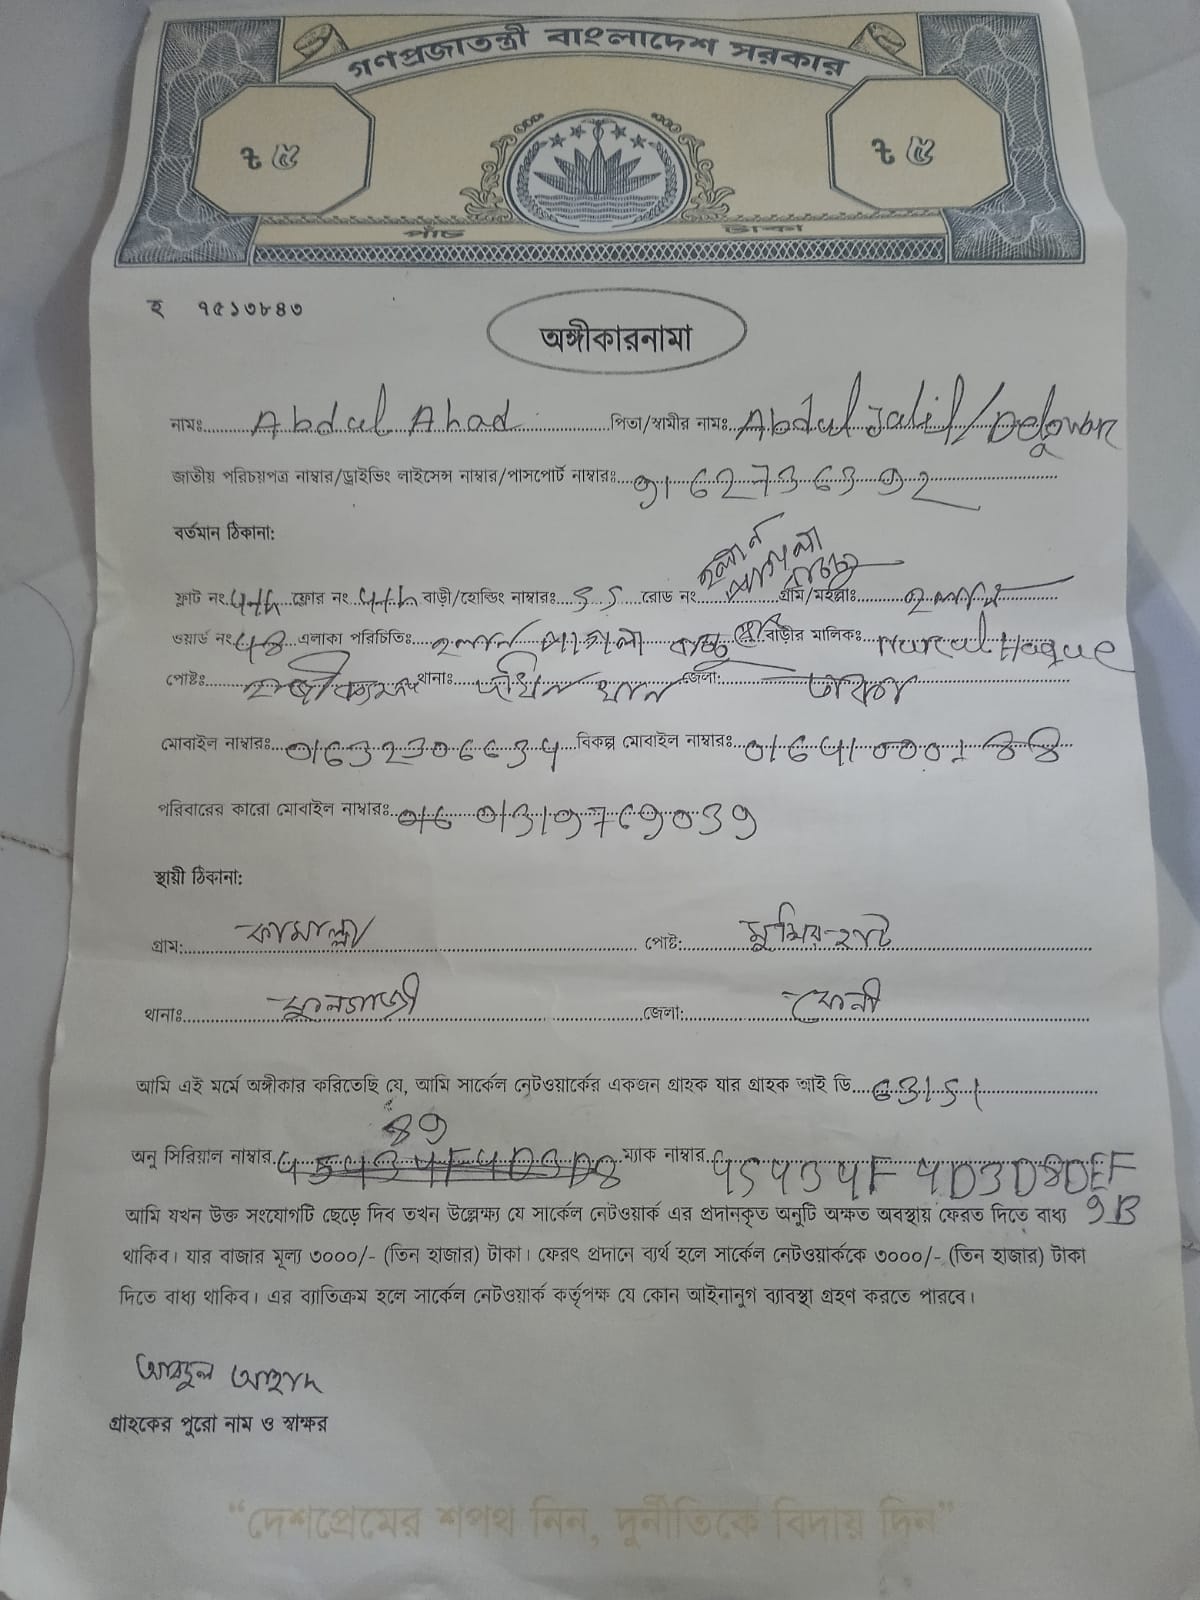 গণপ্রজাতন্ত্রী বাংলাদেশ সরকার
৳ ৫ ৳ ৫
পাঁচ টাকা
হ ৭৫১৩৮৪৩
অঙ্গীকারনামা
নামঃ Abdul Ahad পিতা/স্বামীর নামঃ Abdul Jalil/Delowar
জাতীয় পরিচয়পত্র নাম্বার/ড্রাইভিং লাইসেন্স নাম্বার/পাসপোর্ট নাম্বারঃ
বর্তমান ঠিকানা:
ফ্লাট নং. 4th ফ্লোর নং. 4th বাড়ী/হোল্ডিং নাম্বারঃ রোড নং গ্রাম/মহল্লাঃ হলান
ওয়ার্ড নং এলাকা পরিচিতিঃ হলান বাড়ীর মালিকঃ Nurul Haque
পোষ্টঃ থানাঃ জেলাঃ ঢাকা
মোবাইল নাম্বারঃ 01632306634 বিকল্প মোবাইল নাম্বারঃ
পরিবারের কারো মোবাইল নাম্বারঃ
স্থায়ী ঠিকানা:
গ্রাম: কামাল্লা পোষ্ট: মুন্সির-হাট
থানাঃ ফুলগাজী জেলা: ফেনী
আমি এই মর্মে অঙ্গীকার করিতেছি যে, আমি সার্কেল নেটওয়ার্কের একজন গ্রাহক যার গ্রাহক আই ডি 63151
অনু সিরিয়াল নাম্বার ম্যাক নাম্বার
আমি যখন উক্ত সংযোগটি ছেড়ে দিব তখন উল্লেক্ষ্য যে সার্কেল নেটওয়ার্ক এর প্রদানকৃত অনুটি অক্ষত অবস্থায় ফেরত দিতে বাধ্য
থাকিব। যার বাজার মূল্য ৩০০০/- (তিন হাজার) টাকা। ফেরৎ প্রদানে ব্যর্থ হলে সার্কেল নেটওয়ার্ককে ৩০০০/- (তিন হাজার) টাকা
দিতে বাধ্য থাকিব। এর ব্যাতিক্রম হলে সার্কেল নেটওয়ার্ক কর্তৃপক্ষ যে কোন আইনানুগ ব্যাবস্থা গ্রহণ করতে পারবে।
আবদুল আহাদ
গ্রাহকের পুরো নাম ও স্বাক্ষর
“দেশপ্রেমের শপথ নিন, দুর্নীতিকে বিদায় দিন”